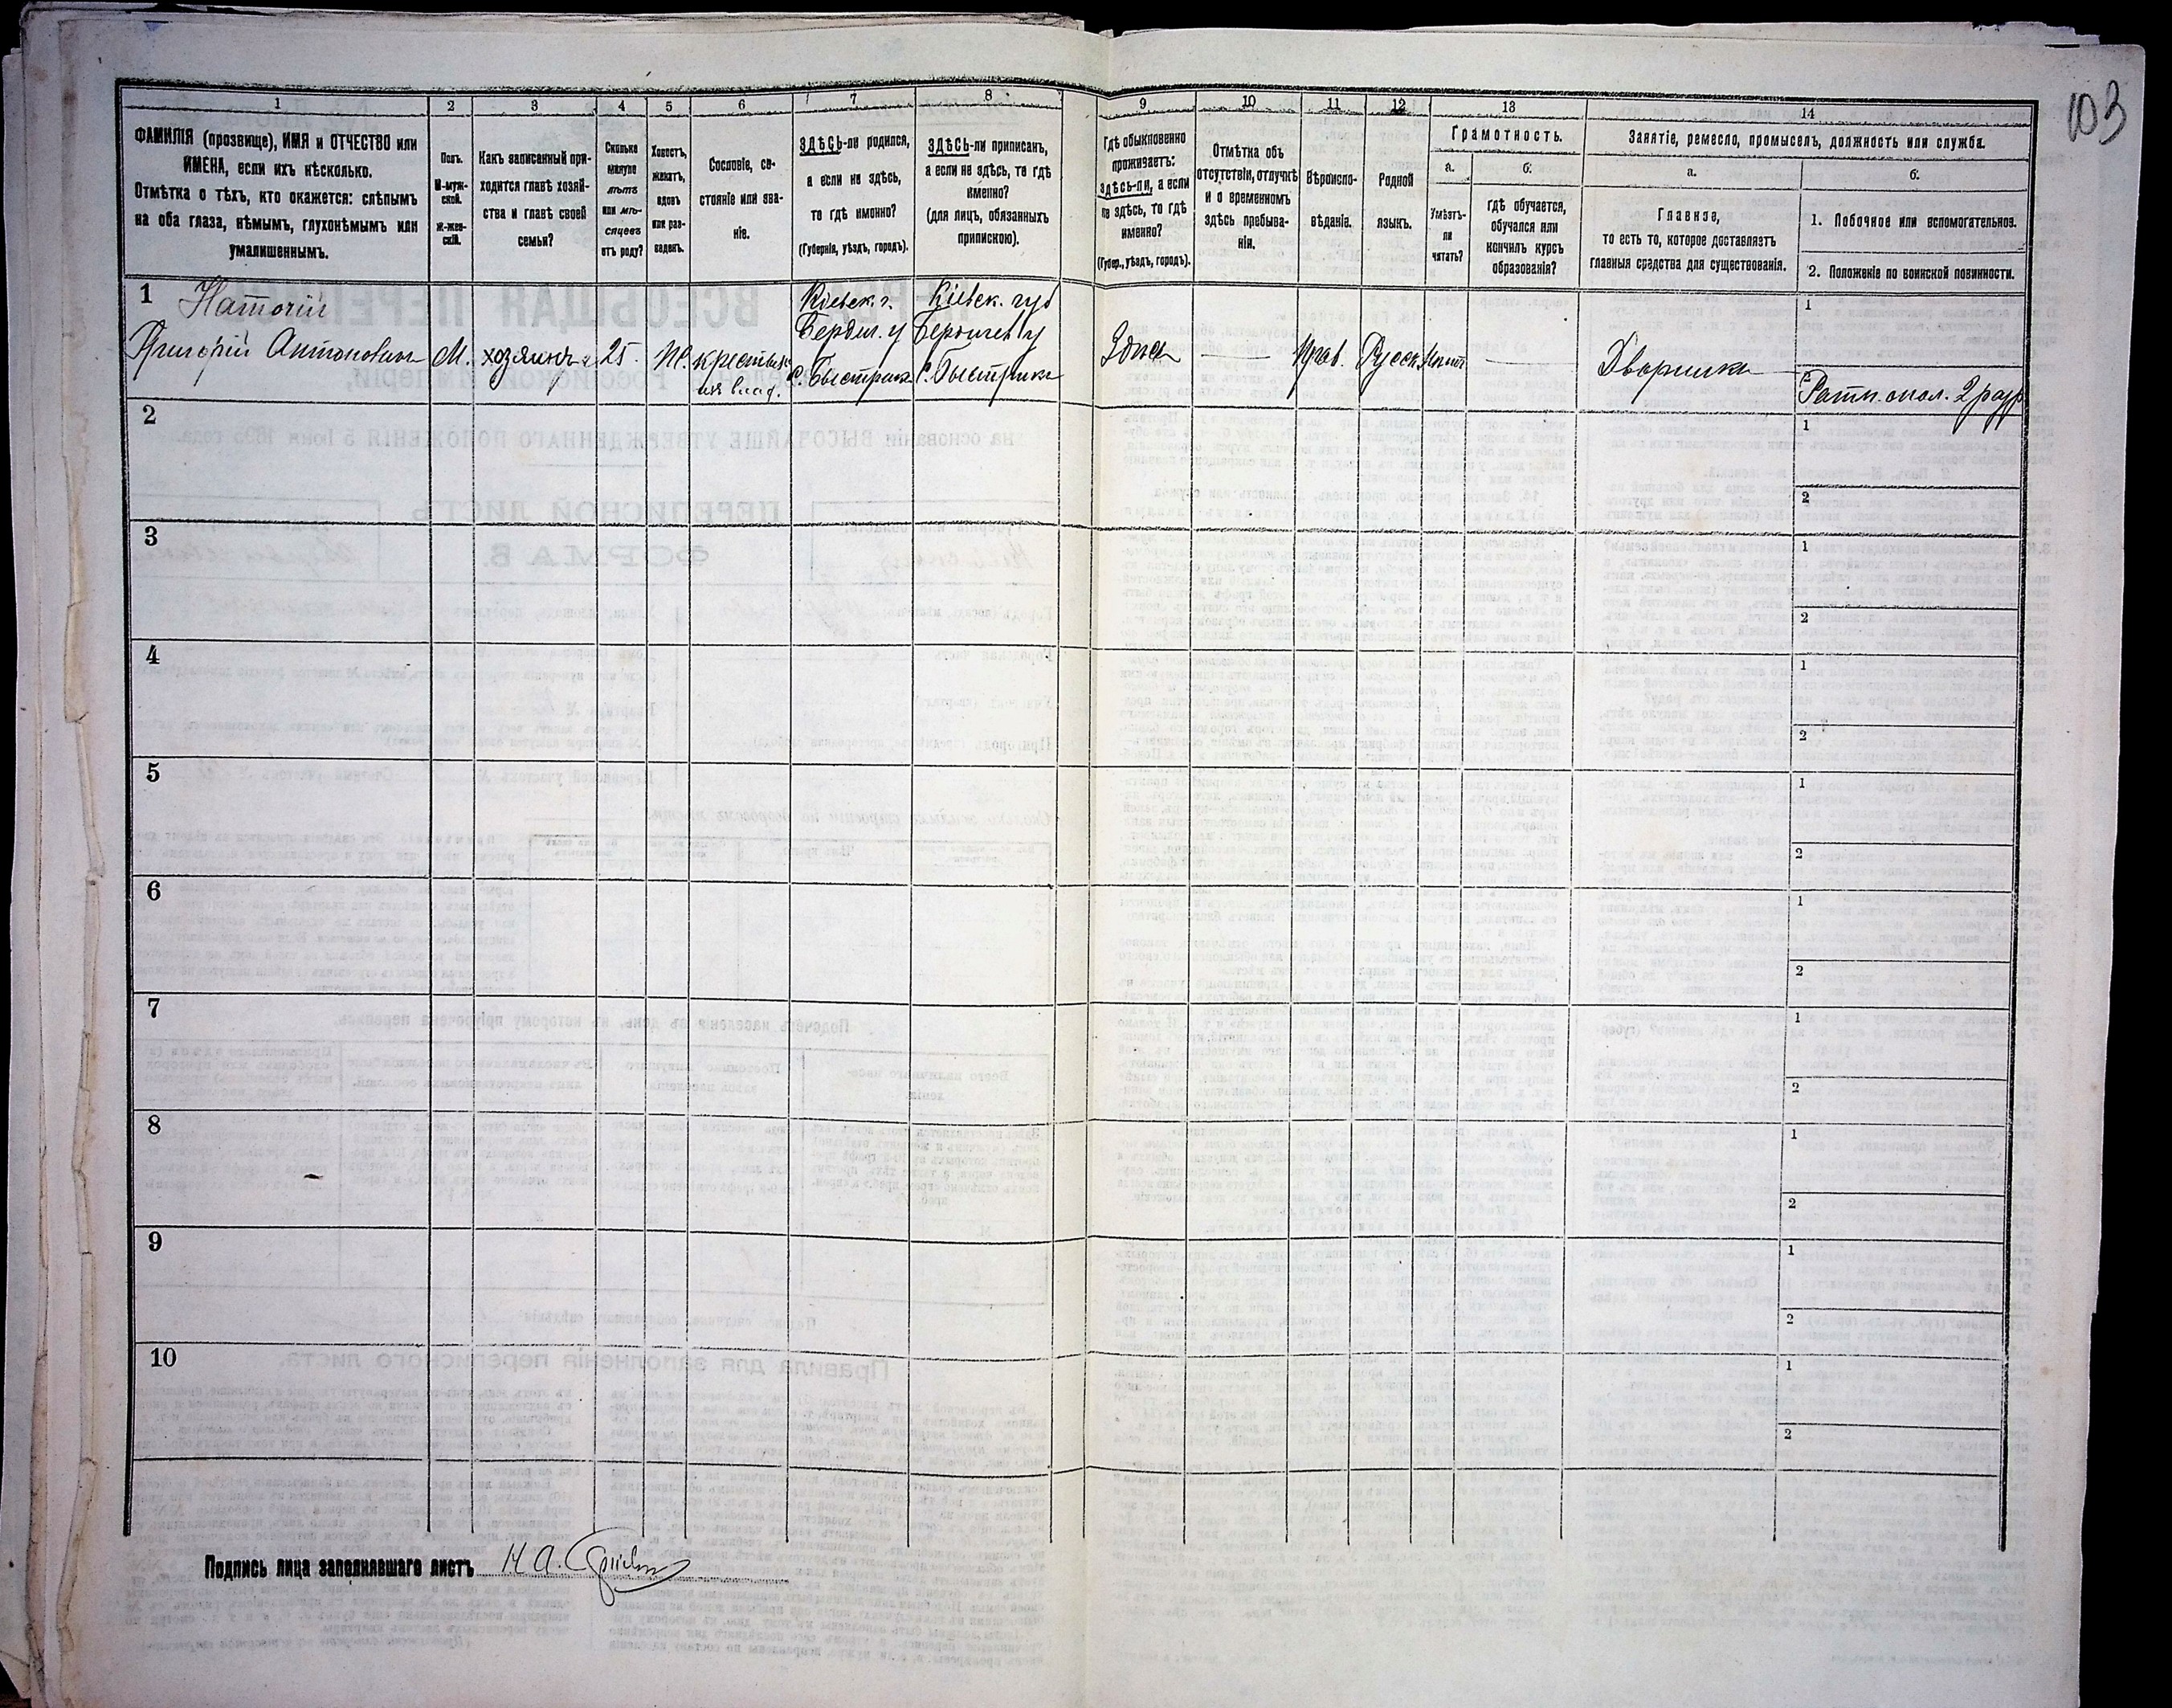 103
1 2 3 4 5 6 7 8 9 10 11 12 13 14
ФАМИЛІЯ (прозвище), ИМЯ и ОТЧЕСТВО или
ИМЕНА, если ихъ нѣсколько.
Отмѣтка о тѣхъ, кто окажется: слѣпымъ
на оба глаза, нѣмымъ, глухонѣмымъ или
умалишеннымъ.
Полъ.
М-муж-
ской.
Ж-жен-
скій.
Какъ записанный при-
ходится главѣ хозяй-
ства и главѣ своей
семьи?
Сколько
минуло
лѣтъ
или мѣ-
сяцевъ
отъ роду?
Холостъ,
женатъ,
вдовъ
или раз-
веденъ.
Сословіе, со-
стояніе или зва-
ніе.
ЗДѢСЬ-ли родился,
а если не здѣсь,
то гдѣ именно?
(Губернія, уѣздъ, городъ).
ЗДѢСЬ-ли приписан,
а если не здѣсь, то гдѣ
именно?
(для лицъ, обязанныхъ
припискою).
Гдѣ обыкновенно
проживаетъ:
здѣсь-ли, а если
не здѣсь, то гдѣ
именно?
(Губер., уѣздъ, городъ).
Отмѣтка объ
отсутствіи, отлучкѣ
и о временномъ
здѣсь пребыва-
ніи.
Вѣроиспо-
вѣданіе.
Родной
языкъ.
Грамотность.
а.
Умѣетъ-
ли
читать?
б.
гдѣ обучается,
обучался или
кончилъ курсъ
образованія?
Занятіе, ремесло, промыселъ, должность или служба.
а.
Главное,
то есть то, которое доставляетъ
главныя средства для существованія.
б.
1. Побочное или вспомогательное.
2. Положеніе по воинской повинности.
1 Наточій
Григорій Антоновичъ
М.
хозяинъ
25
Ж.
крестьян
из влад.
Кіевск. г.
Бердич. у
с. Быстрик
Кіевск. губ
Бердичев у
с. Быстрики
Здѣсь
—
Прав.
Русск
—
Дворникъ
1
2 Ратн. опол. 2 разр
2
1
2
3
1
2
4
1
2
5
1
2
6
1
2
7
1
2
8
1
2
9
1
2
10
1
2
Подпись лица заполнявшаго листъ Н А.